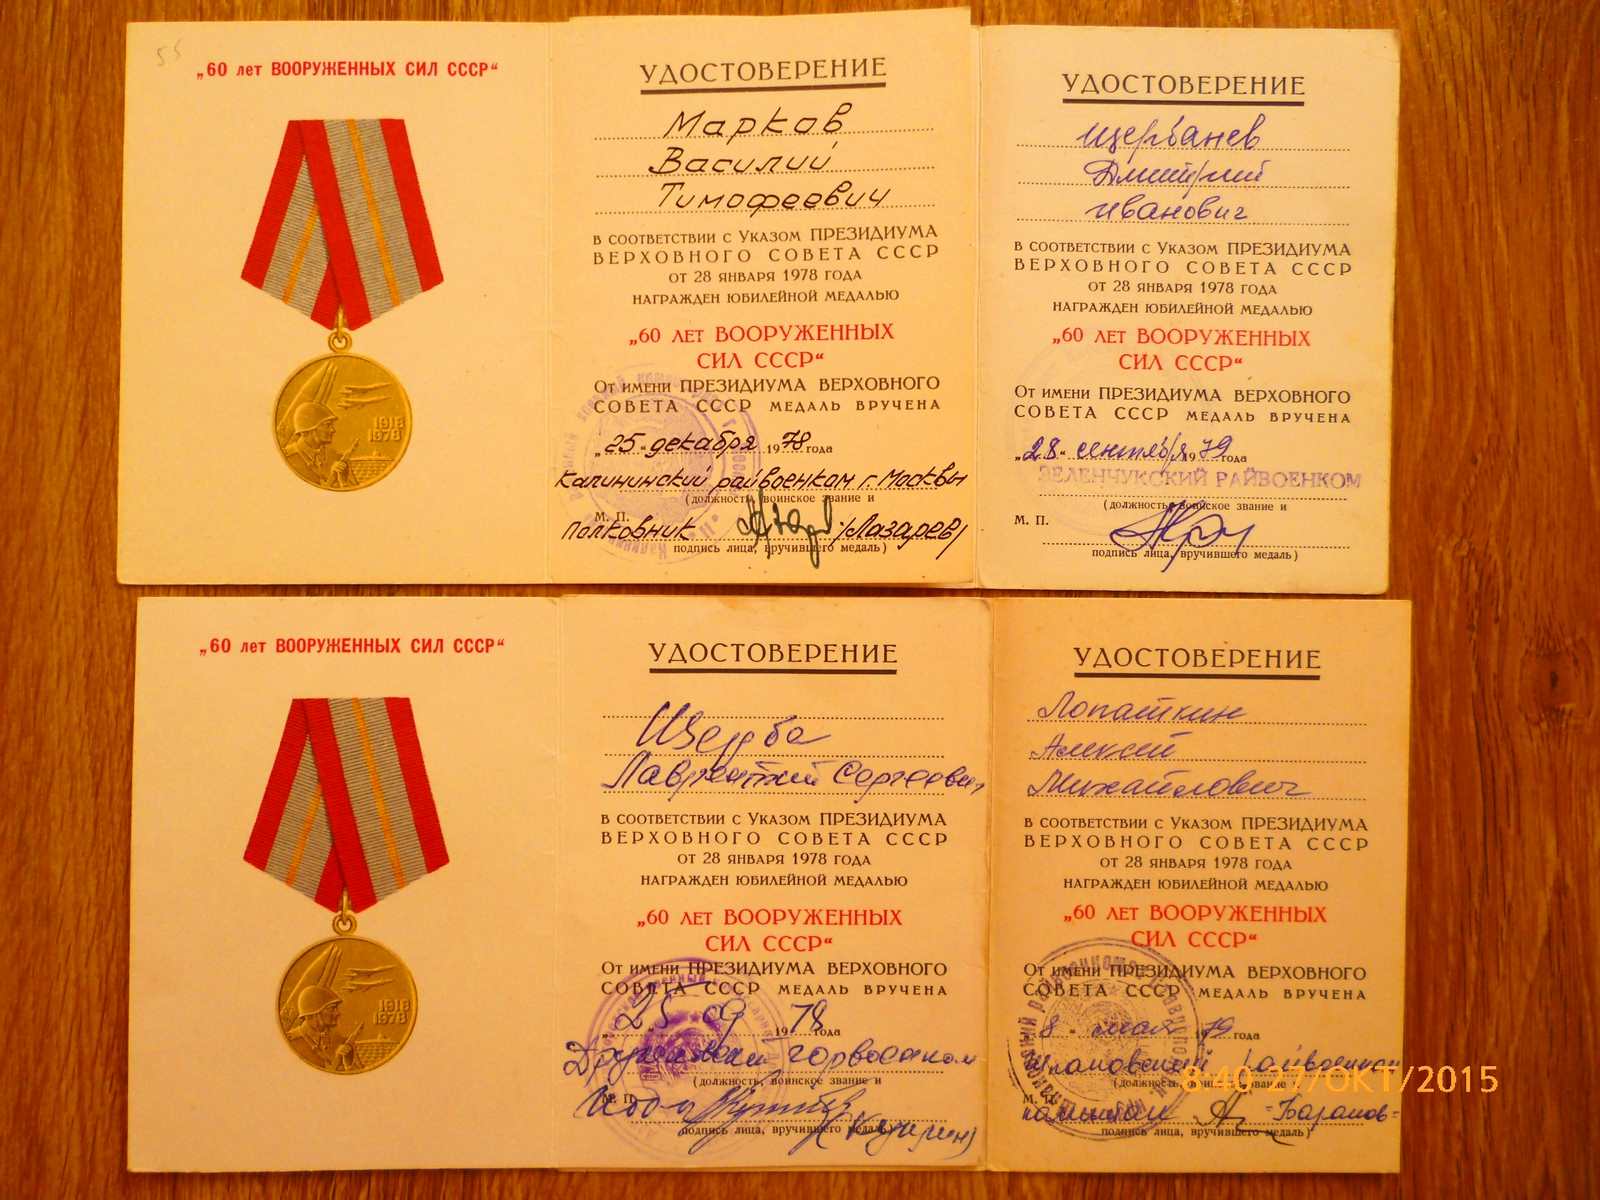 55
„60 лет ВООРУЖЕННЫХ СИЛ СССР“
1918
1978
УДОСТОВЕРЕНИЕ
Марков
Василий
Тимофеевич
в соответствии с Указом ПРЕЗИДИУМА
ВЕРХОВНОГО СОВЕТА СССР
от 28 января 1978 года
награжден юбилейной медалью
„60 лет ВООРУЖЕННЫХ
СИЛ СССР“
От имени ПРЕЗИДИУМА ВЕРХОВНОГО
СОВЕТА СССР медаль вручена
„25“ декабря 1978 года
Калининский райвоенком г. Москвы
(должность, воинское звание и
М. П.
Полковник /Лазарев/
подпись лица, вручившего медаль)
УДОСТОВЕРЕНИЕ
Щербанев
Дмитрий
Иванович
в соответствии с Указом ПРЕЗИДИУМА
ВЕРХОВНОГО СОВЕТА СССР
от 28 января 1978 года
награжден юбилейной медалью
„60 лет ВООРУЖЕННЫХ
СИЛ СССР“
От имени ПРЕЗИДИУМА ВЕРХОВНОГО
СОВЕТА СССР медаль вручена
„28“ сентября 1979 года
ЗЕЛЕНЧУКСКИЙ РАЙВОЕНКОМ
(должность, воинское звание и
М. П.
подпись лица, вручившего медаль)
„60 лет ВООРУЖЕННЫХ СИЛ СССР“
1918
1978
УДОСТОВЕРЕНИЕ
Щерба
Лаврентий Сергеевич
в соответствии с Указом ПРЕЗИДИУМА
ВЕРХОВНОГО СОВЕТА СССР
от 28 января 1978 года
награжден юбилейной медалью
„60 лет ВООРУЖЕННЫХ
СИЛ СССР“
От имени ПРЕЗИДИУМА ВЕРХОВНОГО
СОВЕТА СССР медаль вручена
„25“ 09 1978 года
горвоенком
(должность, воинское звание и
М. П.
подпись лица, вручившего медаль)
УДОСТОВЕРЕНИЕ
Лопаткин
Алексей
Михайлович
в соответствии с Указом ПРЕЗИДИУМА
ВЕРХОВНОГО СОВЕТА СССР
от 28 января 1978 года
награжден юбилейной медалью
„60 лет ВООРУЖЕННЫХ
СИЛ СССР“
От имени ПРЕЗИДИУМА ВЕРХОВНОГО
СОВЕТА СССР медаль вручена
„8“ мая 1979 года
райвоенком
(должность, воинское звание и
М. П.
капитан -Баранов-
подпись лица, вручившего медаль)
8:40 27/ОКТ/2015